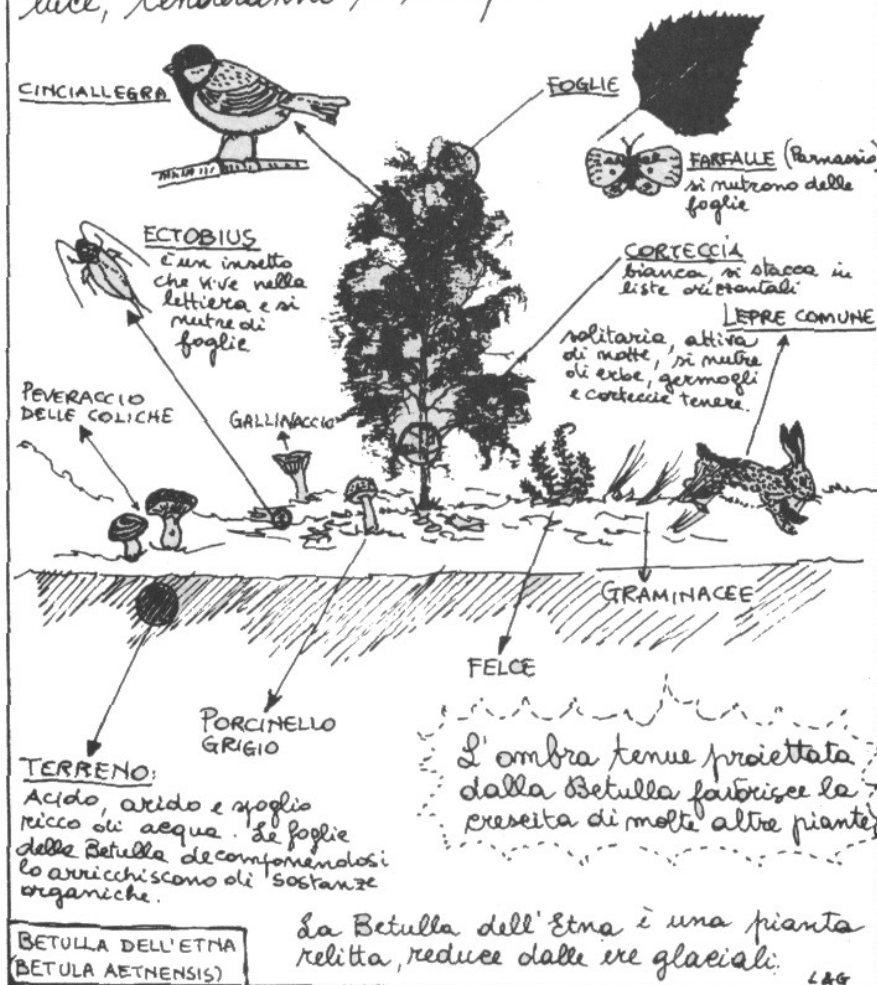 luce,
CINCIALLEGRA
FOGLIE
FARFALLE (Parnassio)
si nutrono delle
foglie
ECTOBIUS
è un insetto
che vive nella
lettiera e si
nutre di
foglie
CORTECCIA
bianca, si stacca in
liste orizzontali
LEPRE COMUNE
solitaria, attiva
di notte, si nutre
di erbe, germogli
e corteccie tenere.
PEVERACCIO
DELLE COLICHE
GALLINACCIO
GRAMINACEE
FELCE
PORCINELLO
GRIGIO
TERRENO:
Acido, arido e spoglio
ricco di acqua. Le foglie
della Betulla decomponendosi
lo arricchiscono di sostanze
organiche.
L'ombra tenue proiettata
dalla Betulla favorisce la
crescita di molte altre piante
BETULLA DELL'ETNA
(BETULA AETNENSIS)
La Betulla dell'Etna è una pianta
relitta, reduce dalle ere glaciali.
L&G